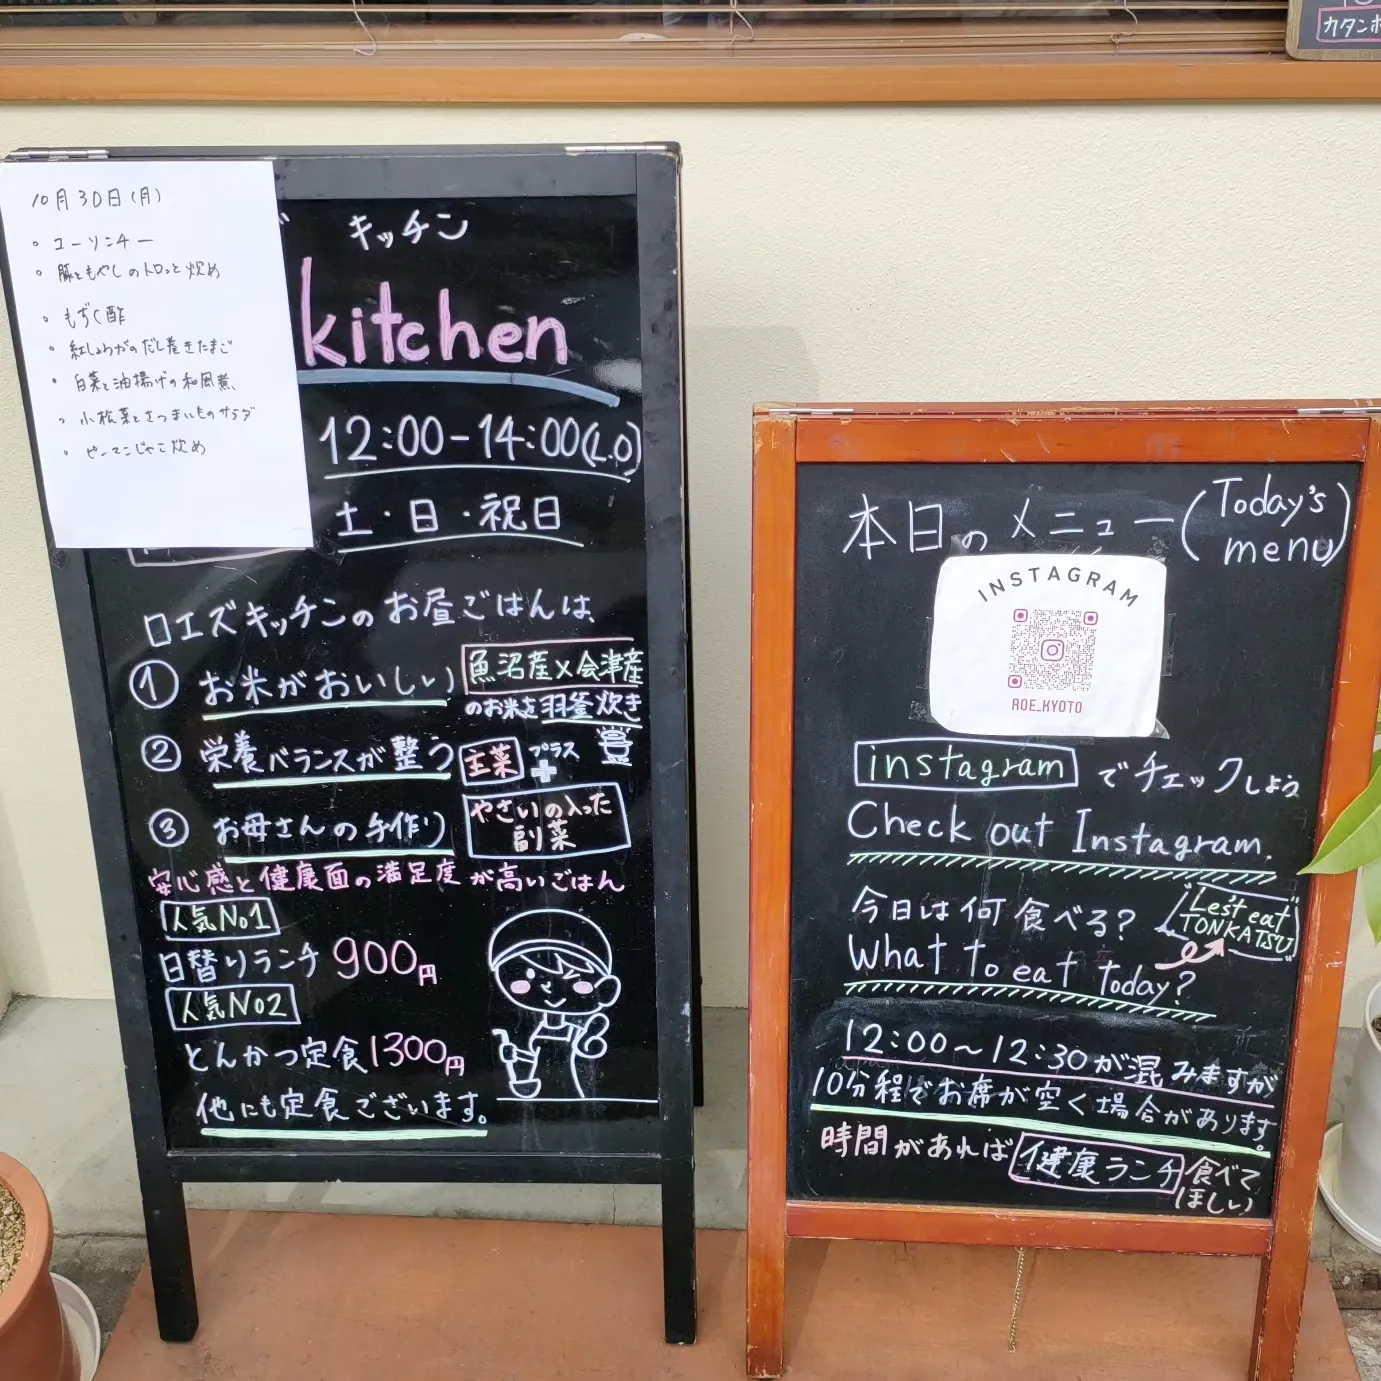 カタンホ
10月30日(月)
。ユーリンチー
。豚ともやしのトロっと炒め
。もずく酢
。紅しょうがのだし巻きたまご
。白菜と油揚げの和風煮
。小松菜とさつまいものサラダ
。ピーマンじゃこ炒め
キッチン
kitchen
12:00-14:00(L.O)
土・日・祝日
ロエズキッチンのお昼ごはんは、
① お米がおいしい 魚沼産×会津産
のお米を羽釜炊き
② 栄養バランスが整う 主菜 プラス +
やさいの入った
副菜
③ お母さんの手作り
安心感と健康面の満足度が高いごはん
人気No1
日替りランチ 900円
人気No2
とんかつ定食1300円
他にも定食ございます。
本日のメニュー(Today's
menu)
INSTAGRAM
ROE_KYOTO
instagramでチェックしよう
Check out Instagram.
今日は何食べる?
"Les't eat
TONKATSU"
What to eat today?
12:00～12:30が混みますが
10分程でお席が空く場合があります。
時間があれば健康ランチ食べて
ほしい